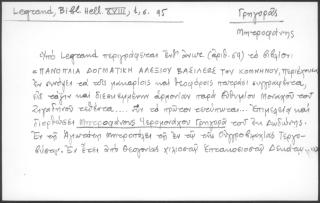 Legrand, Bibl. Hell. XVIII, t, σ. 95
Γρηγορᾶς
Μητροφάνης
Ὑπὸ Legrand περιγράφεται ἔνθ' ἄνωτ. (ἀριθ. 69) τὸ βιβλίον:
«ΠΑΝΟΠΛΙΑ ΔΟΓΜΑΤΙΚΗ ΑΛΕΞΙΟΥ ΒΑΣΙΛΕΩΣ ΤΟΥ ΚΟΜΝΗΝΟΥ, περιέχουσα
ἐν συνόψει τὰ τοῖς μακαρίοις καὶ θεοφόροις πατράσι συγγραφέντα,
εἰς τάξιν καὶ διεσκεμμένην ἁρμονίαν παρὰ Εὐθυμίου Μοναχοῦ τοῦ
Ζιγαδηνοῦ τεθέντα.... Ἐν τὸ πρῶτον τυπωθεῖσα... Ἐπιμελείᾳ καὶ
διορθώσει Μητροφάνους Ἱερομονάχου Γρηγορᾶ τοῦ ἐκ Δωδώνης.
Ἐν τῇ Ἁγιωτάτῃ Μητροπόλει τῇ ἐν τῷ τῆς Οὐγγροβλαχίας Τεργο-
βύστῳ. Ἐν ἔτει ἀπὸ Θεογονίας χιλιοστῷ Ἑπτακοσιοστῷ Δεκάτῳ